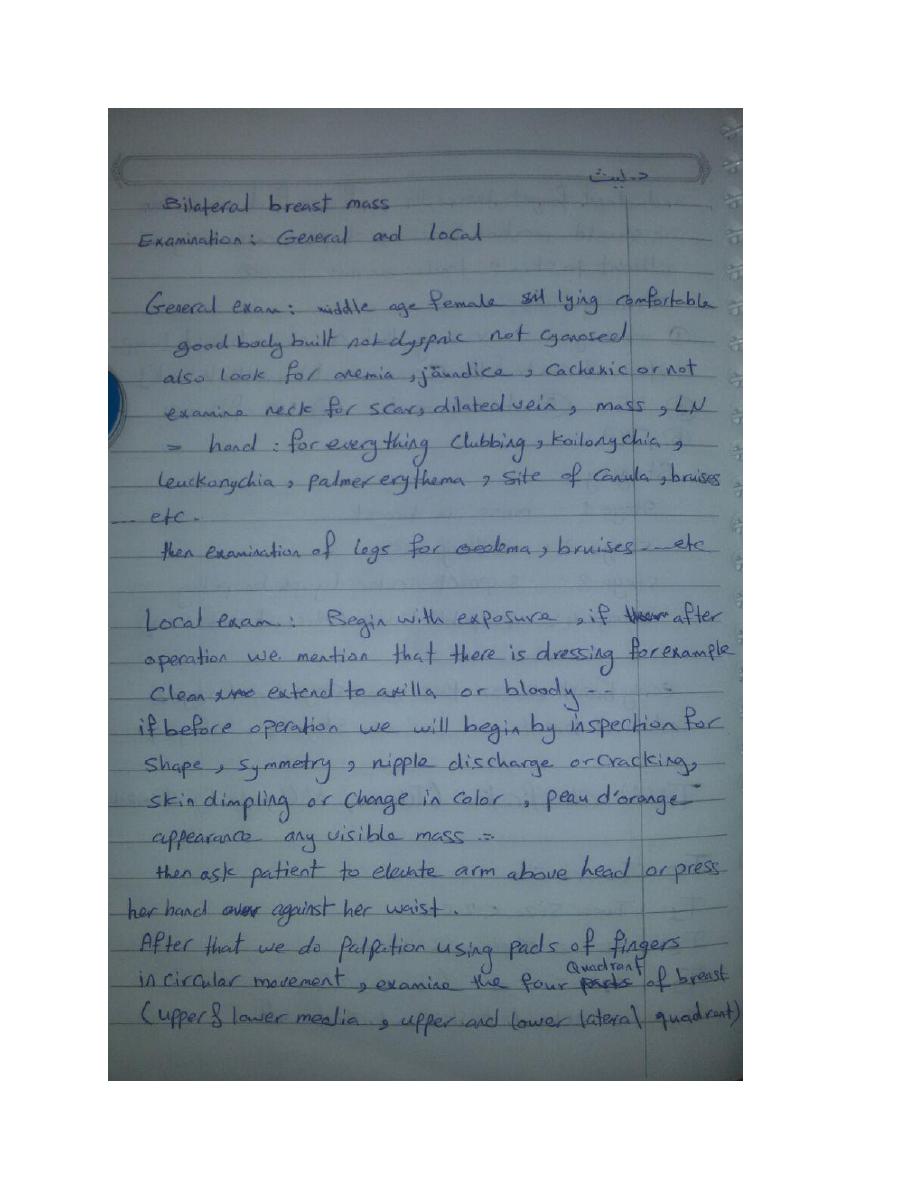 د.ليث
Bilateral breast mass
Examination: General and local
General exam: middle age female lying comfortable
good body built not dyspnic not cyanosed
also look for anemia, jaundice, cachexic or not
examine neck for scar, dilated vein, mass, LN
= hand: for everything clubbing, koilonychia,
leuckonychia, palmer erythema, site of canula, bruises
--- etc.
then examination of legs for oedema, bruises --- etc
Local exam: Begin with exposure, if after
operation we mention that there is dressing for example
clean extend to axilla or bloody --
if before operation we will begin by inspection for
shape, symmetry, nipple discharge or cracking,
skin dimpling or change in color, peau d'orange
appearance any visible mass.
then ask patient to elevate arm above head or press
her hand against her waist.
After that we do Palpation using pads of fingers
in circular movement, examine the four Quadrant of breast
(upper & lower media, upper and lower lateral quadrant)